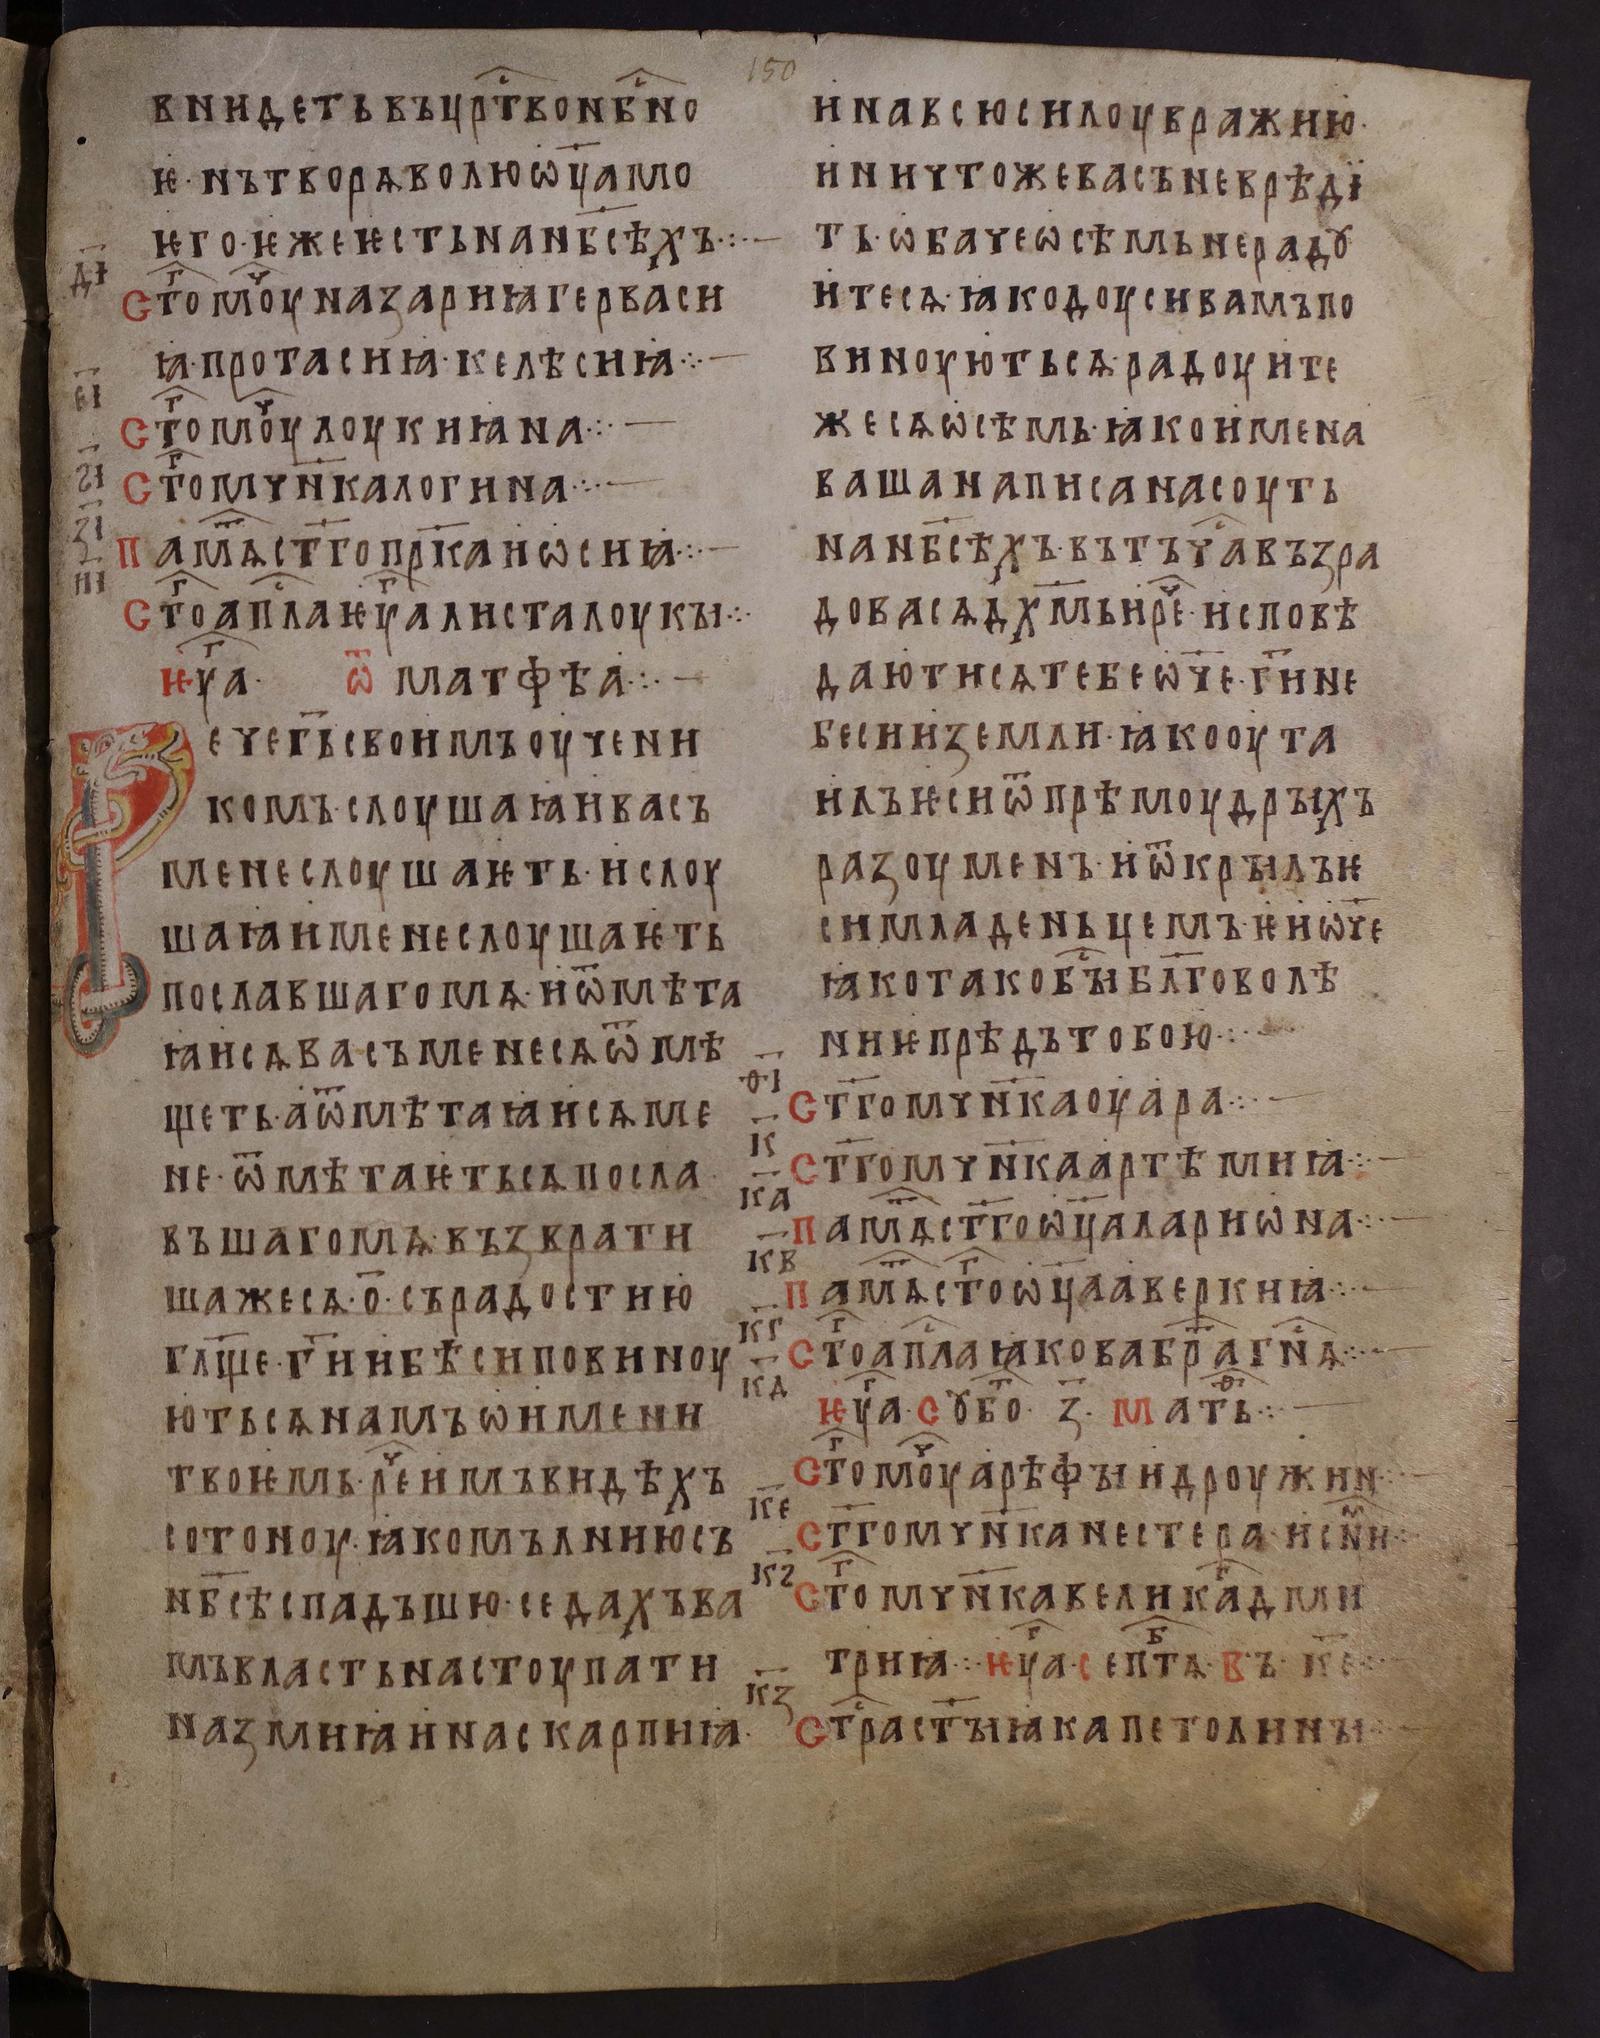 150
вꙇндеть въ цр҇тво нб҇но
ѥ· нъ творѧ волю ѡц҃а мо
ѥго· ѥже ѥсть на нб҃сѣхъ·:·—
д҃ı
Ст҇омоу ч҇ назариꙗ герваси
ꙗ· протасиꙗ· келѣсиꙗ·:·—
е҃ı
Ст҇омоу ч҇ лоукиꙗна·:·—
ѕ҃ı
Ст҇о мчн҃ка логина·:·—
з҃ı
Памѧ҇ ст҃го пр҃ка иѡсиꙗ·:·—
и҃ı
Ст҇о ап҇ла ѥу҇алиста лоукы·:·
ѥу҇а· ѿ матфѣа·:·—
Рече г҃ь своимъ оучени
комъ· слоушаꙗи васъ
мене слоушаѥть· и слоу
шаꙗи мене слоушаѥть
пославшаго мѧ· и ѿмѣта
ꙗисѧ васъ мене сѧ ѿмѣ
щеть· а ѿмѣтаꙗисѧ ме
не· ѿмѣтаѥтьсѧ посла
въшаго мѧ· възврати
шажесѧ· о҃· съ радостию
гл҃ще· г҃и и бѣси повиноу
ютьсѧ намъ ѡ имени
твоѥмь· ре҇ имъ видѣхъ
сотоноу· ꙗко мълнию съ
нб҃сѣ спадъшю· се дахъ ва
мъ власть настоупати
на змиꙗ и на скарпиꙗ·
и на всю силоу вражию·
и ничтоже васъ не врѣдı
ть· ѡбаче ѡ сѣмь не радꙋ
итесѧ· ꙗко доуси вамъ по
виноуютьсѧ· радоуите
жесѧ ѡ сѣмь· ꙗко имена
ваша написана соуть
на нб҃сѣхъ· въ тъ ча҇ възра
довасѧ дх҃мь и ре҇· исповѣ
даютисѧ тебе ѡч҃е· г҃и не
беси и земли· ꙗко оута
илъ ѥси ѿ прѣмоудрыхъ
разоуменъ· и ѿкрылъ ѥ
си младеньцемъ· ѥи ѡч҃е
ꙗко тако бы҇ бл҃говолѣ
ниѥ прѣдъ тобою·:·—
ѳ҃ı
Ст҃го мчн҃ка оуара·:·—
к҃
Ст҃го мчн҃ка артѣмиꙗ·:·—
к҃а
Памѧ҇ ст҃го ѡц҃а лариѡна·:·—
к҃в
Памѧ҇ ст҇о ѡц҃а аверкиꙗ·:·—
к҃г
Ст҇о ап҇ла ꙗкова бра҇ гн҇ѧ·:·—
ѥу҇а· Сꙋбо҇· з҃· Мать҇·:·—
к҃д
Ст҇омоу ч҇ арѣфы и дроужин·:·—
к҃е
Ст҃го мчн҃ка нестера· и сн҇и·:·
к҃ѕ
Ст҇о мчн҃ка велика҇ дми
триꙗ·:· ѥу҇а· Септѧ҇· Въ к҃е·:·—
к҃з
Ст҇расты ꙗ капетолины·:·—